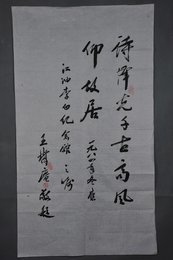 诗笔光千古高风
仰故居
一九八一年冬应
江油李白纪念馆之嘱
王
敬题